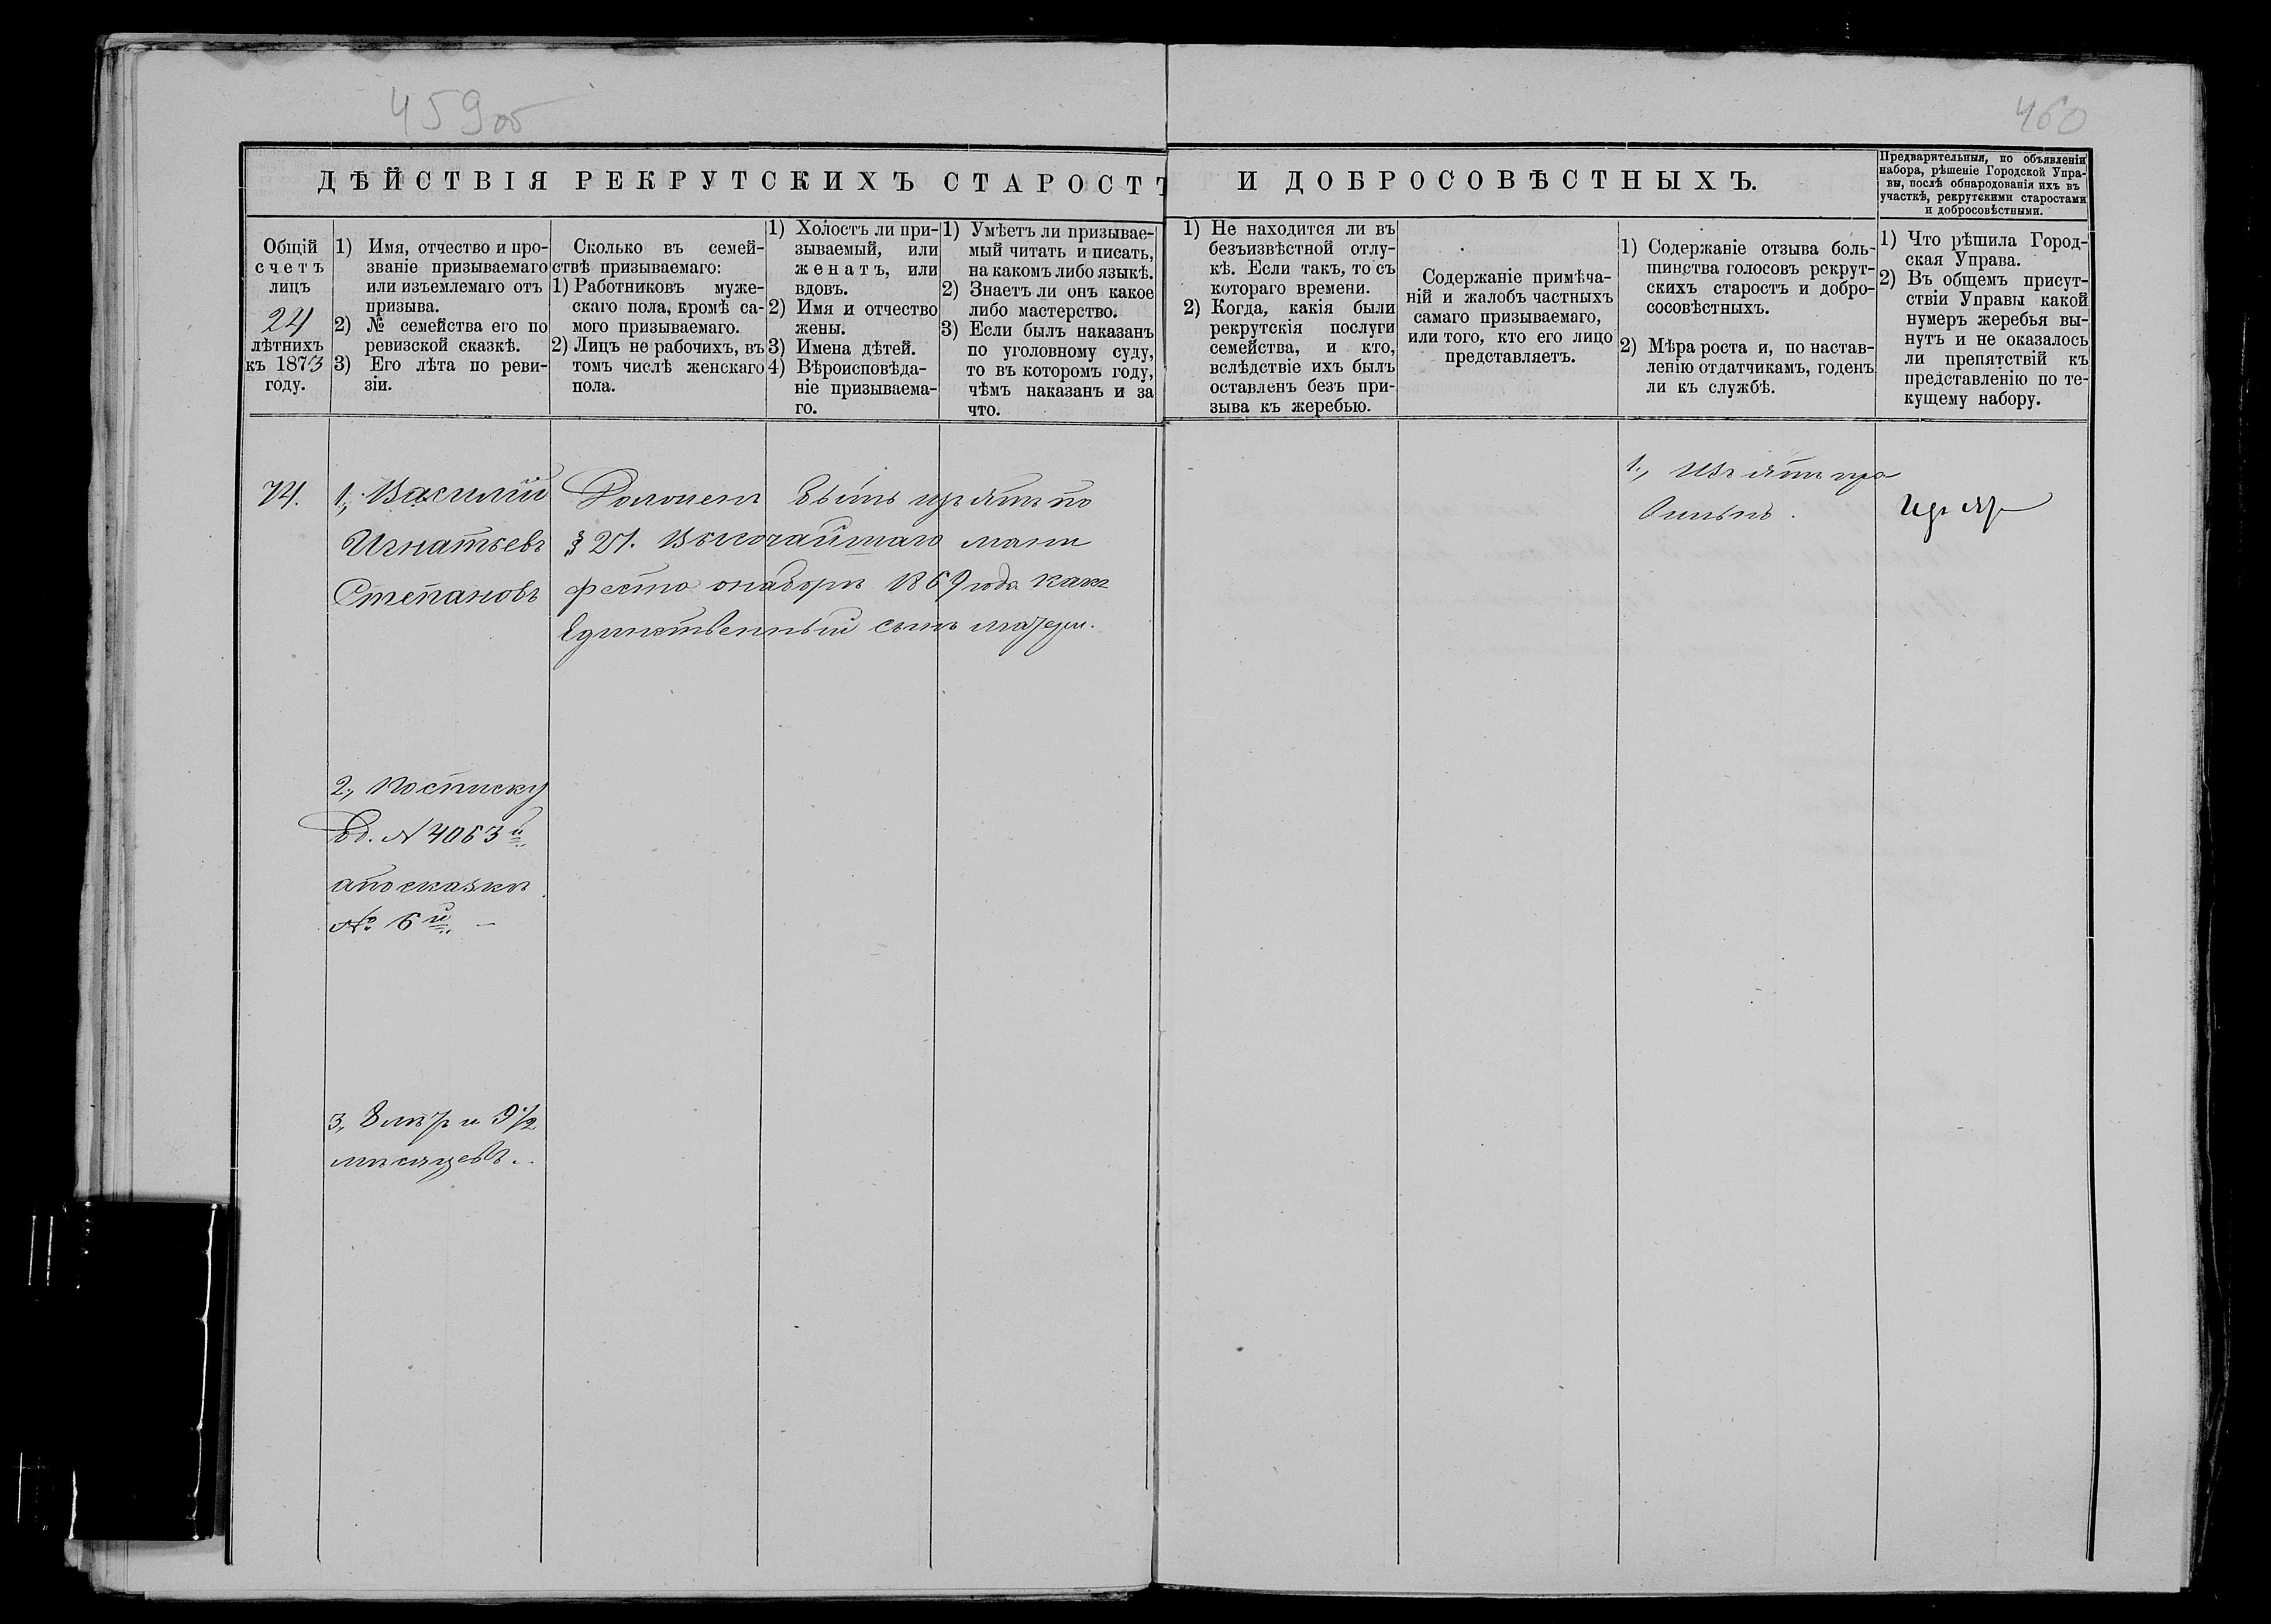 459об
460
ДѢЙСТВІЯ РЕКРУТСКИХЪ СТАРОСТЪ И ДОБРОСОВѢСТНЫХЪ.
Предварительныя, по объявленіи
набора, рѣшеніе Городской Упра-
вы, послѣ обнародованія ихъ въ
участкѣ, рекрутскими старостами
и добросовѣстными.
Общій
счетъ
лицъ
24
лѣтнихъ
къ 1873
году.
1) Имя, отчество и про-
званіе призываемаго
или изъемлемаго отъ
призыва.
2) № семейства его по
ревизской сказкѣ.
3) Его лѣта по реви-
зіи.
Сколько въ семей-
ствѣ призываемаго:
1) Работниковъ муже-
скаго пола, кромѣ са-
мого призываемаго.
2) Лицъ не рабочихъ, въ
томъ числѣ женскаго
пола.
1) Холостъ ли при-
зываемый, или
женатъ, или
вдовъ.
2) Имя и отчество
жены.
3) Имена дѣтей.
4) Вѣроисповѣда-
ніе призываема-
го.
1) Умѣетъ ли призывае-
мый читать и писать,
на какомъ либо языкѣ.
2) Знаетъ ли онъ какое
либо мастерство.
3) Если былъ наказанъ
по уголовному суду,
то въ которомъ году,
чѣмъ наказанъ и за
что.
1) Не находится ли въ
безъизвѣстной отлу-
кѣ. Если такъ, то съ
котораго времени.
2) Когда, какія были
рекрутскія послуги
семейства, и кто,
вслѣдствіе ихъ былъ
оставленъ безъ при-
зыва къ жеребью.
Содержаніе примѣча-
ній и жалобъ частныхъ
самаго призываемаго,
или того, кто его лицо
представляетъ.
1) Содержаніе отзыва боль-
шинства голосовъ рекрут-
скихъ старостъ и добро-
сосовѣстныхъ.
2) Мѣра роста и, по настав-
ленію отдатчикамъ, годенъ
ли къ службѣ.
1) Что рѣшила Город-
ская Управа.
2) Въ общемъ присут-
ствіи Управы какой
нумеръ жеребья вы-
нутъ и не оказалось
ли препятствій къ
представленію по те-
кущему набору.
74.
1., Василій
Игнатьевъ
Степановъ
Долженъ быть изъятъ по
§ 27. Высочайшаго мани
феста о наборѣ 1869 года какъ
Единственный сынъ матери.
1., Изъятъ пра
вильнъ.
Изъят
2., По списку
Од. № 4063й
а по сказкѣ
№ 6й. –
3., 8 лѣтъ и 9 1/2
мѣсяцевъ.